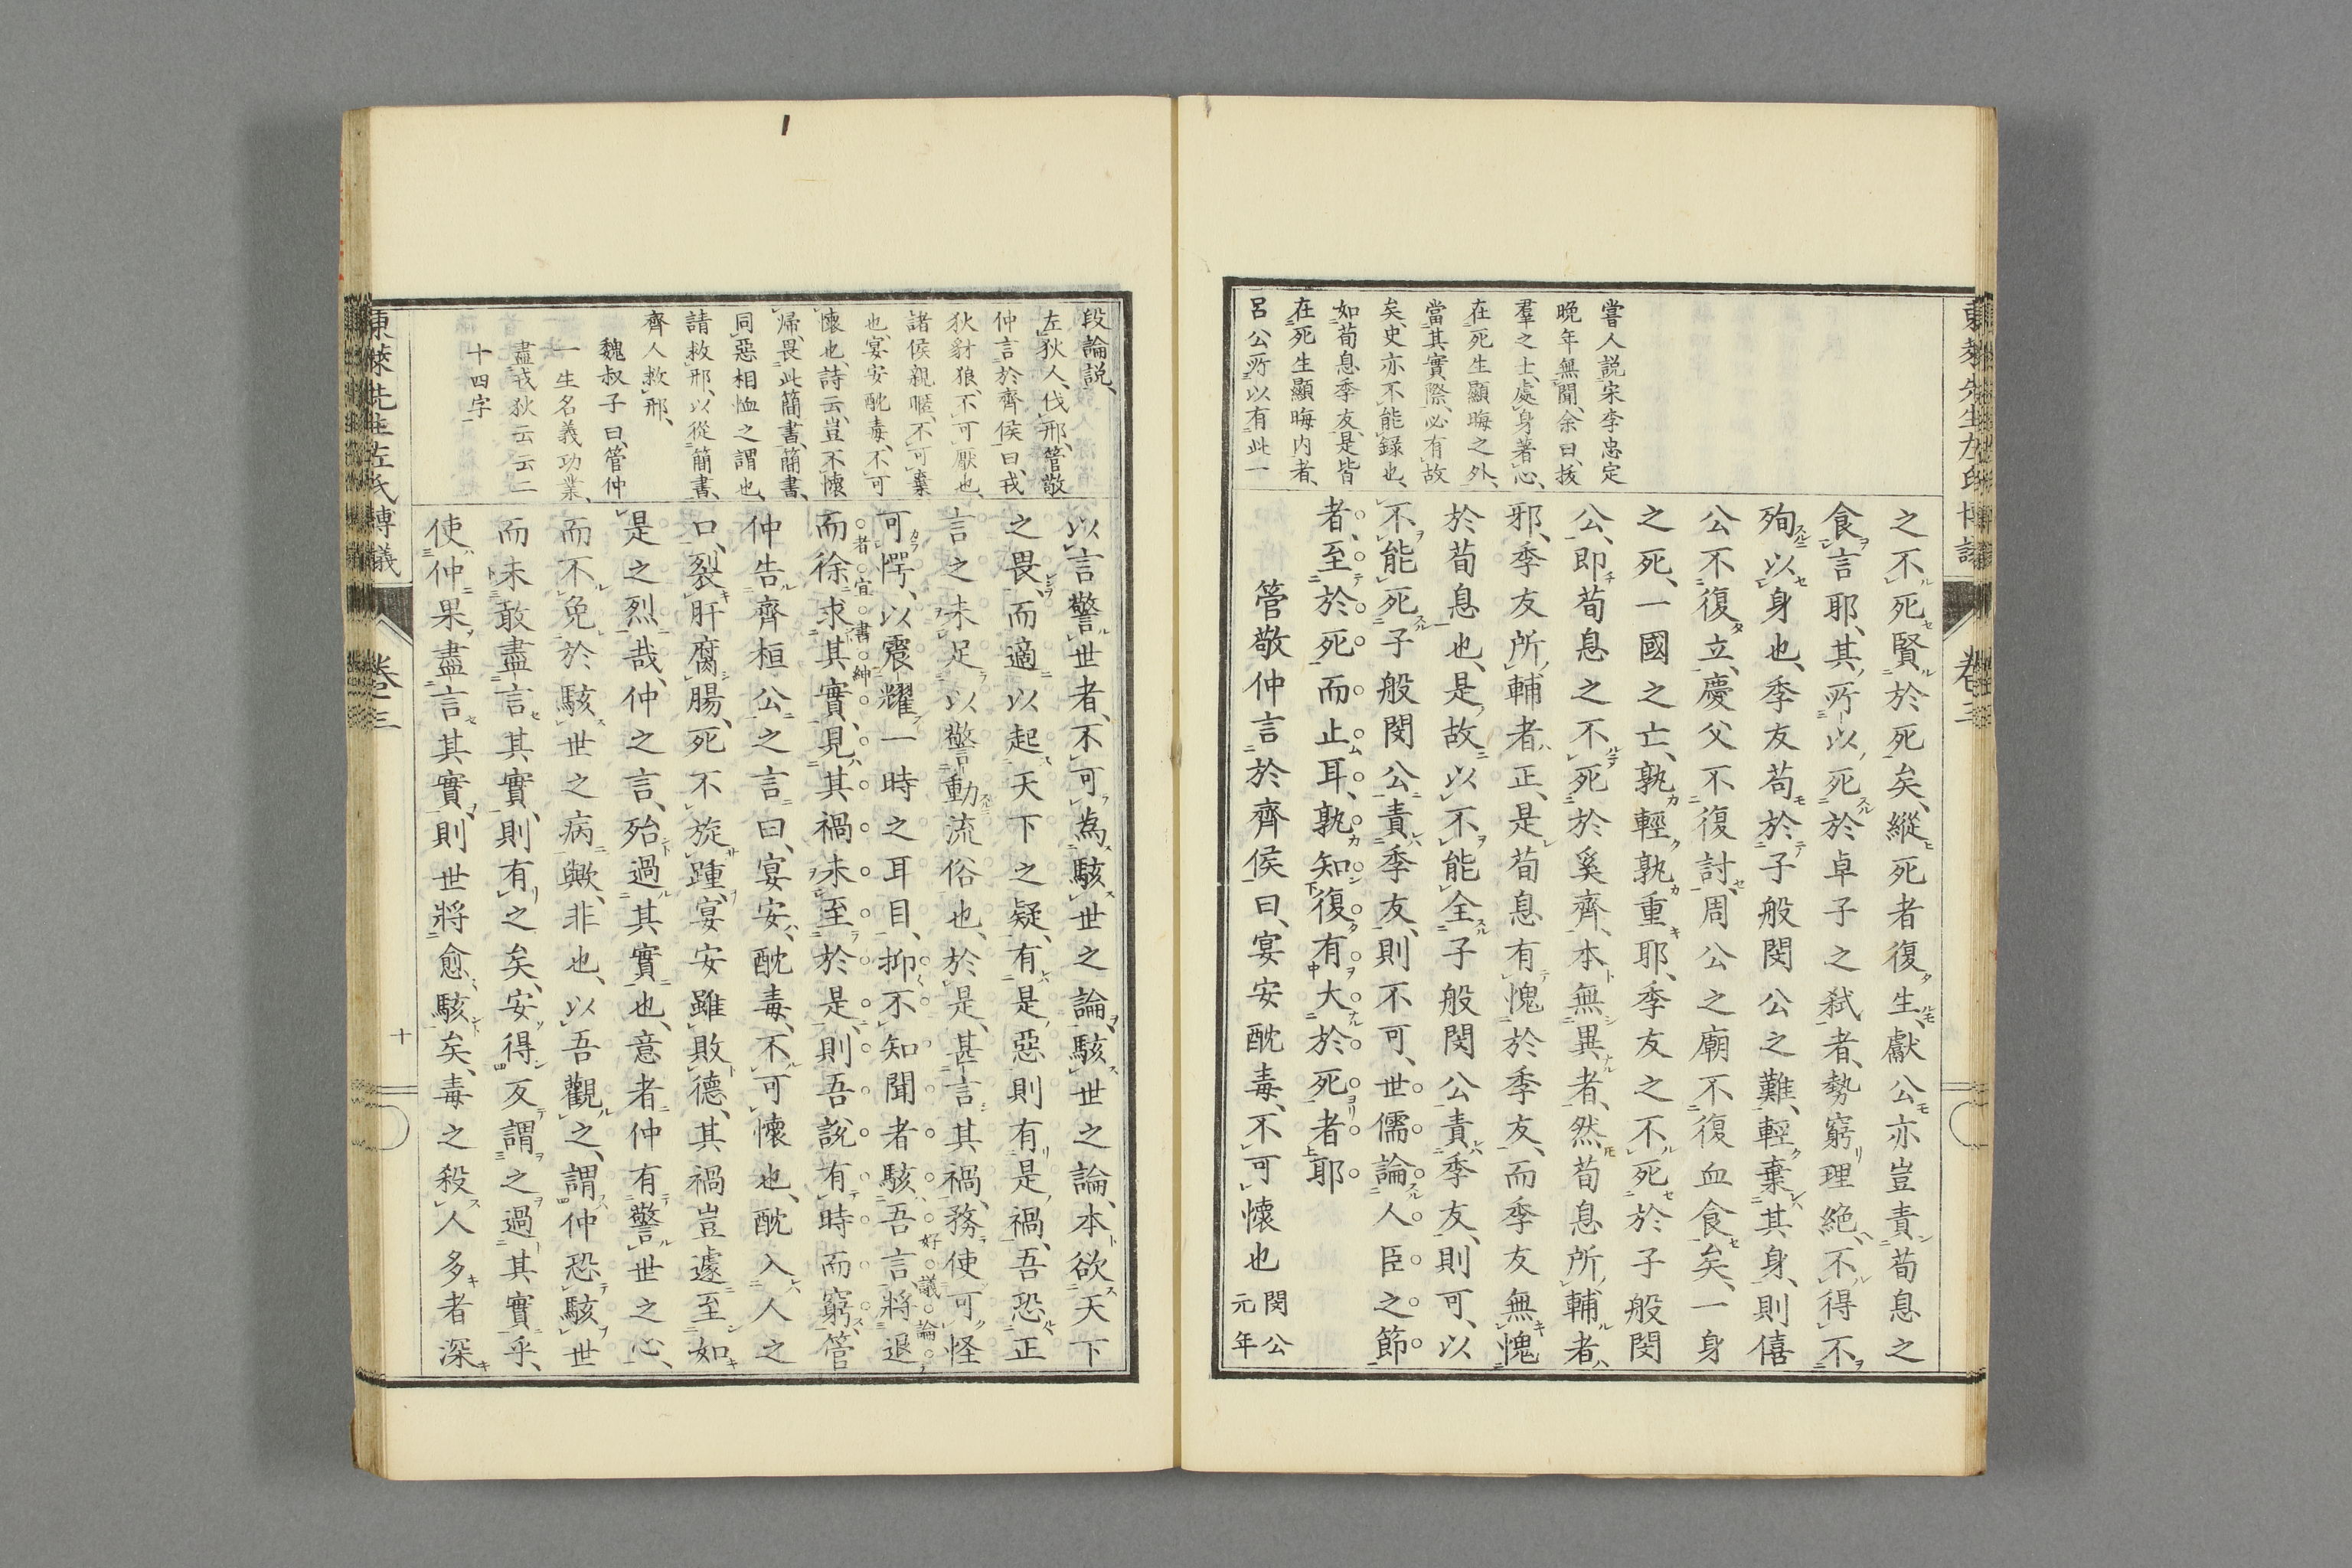 東萊先生左氏博議
卷三
嘗人説宋李忠定
晩年無聞、余曰、抜
羣之士、處身著心、
在死生顯晦之外、
當其實際、必有故
矣、史亦不能録也、
如荀息季友、是皆
在死生顯晦内者、
呂公所以有此一
之不死賢於死矣、縱死者復生、獻公亦豈責荀息之
食言耶、其所以死於卓子之弑者、勢窮理絶、不得不
殉以身也、季友苟於子般閔公之難、輕棄其身、則僖
公不復立、慶父不復討、周公之廟不復血食矣、一身
之死、一國之亡、孰輕孰重耶、季友之不死於子般閔
公、即荀息之不死於奚齊、本無異者、然荀息所輔者
邪、季友所輔者正、是荀息有愧於季友、而季友無愧
於荀息也、是故以不能全子般閔公責季友、則可、以
不能死子般閔公責季友、則不可、世儒論人臣之節
者、至於死而止耳、孰知復有大於死者耶
管敬仲言於齊侯曰、宴安酖毒、不可懷也 閔公元年
段論説、
左、狄人、伐邢、管敬
仲言於齊侯曰、戎
狄豺狼、不可厭也、
諸侯親暱、不可棄
也、宴安酖毒、不可
懷也、詩云、豈不懷
帰、畏此簡書、簡書、
同惡相恤之謂也、
請救邢、以從簡書、
齊人救邢、
魏叔子曰、管仲
一生名義功業、
盡戎狄云云二
十四字
以言警世者、不可為駭世之論、駭世之論、本欲天下
之畏、而適以起天下之疑、有是惡則有是禍、吾恐正
言之未足以警動流俗也、於是、甚言其禍、務使可怪
可愕、以震耀一時之耳目、抑不知聞者駭吾言、將退
好議論
而徐求其實、見其禍未至於是、則吾説有時而窮、管
者宜書紳
仲告齊桓公之言曰、宴安、酖毒、不可懷也、酖入人之
口、裂肝腐腸、死不旋踵、宴安雖敗德、其禍豈遽至如
是之烈哉、仲之言、殆過其實也、意者仲有警世之心、
而不免於駭世之病歟、非也、以吾觀之、謂仲恐駭世
而未敢盡言其實、則有之矣、安得反謂之過其實乎、
使仲果盡言其實、則世將愈駭矣、毒之殺人多者深
東萊先生左氏博議
卷三
十